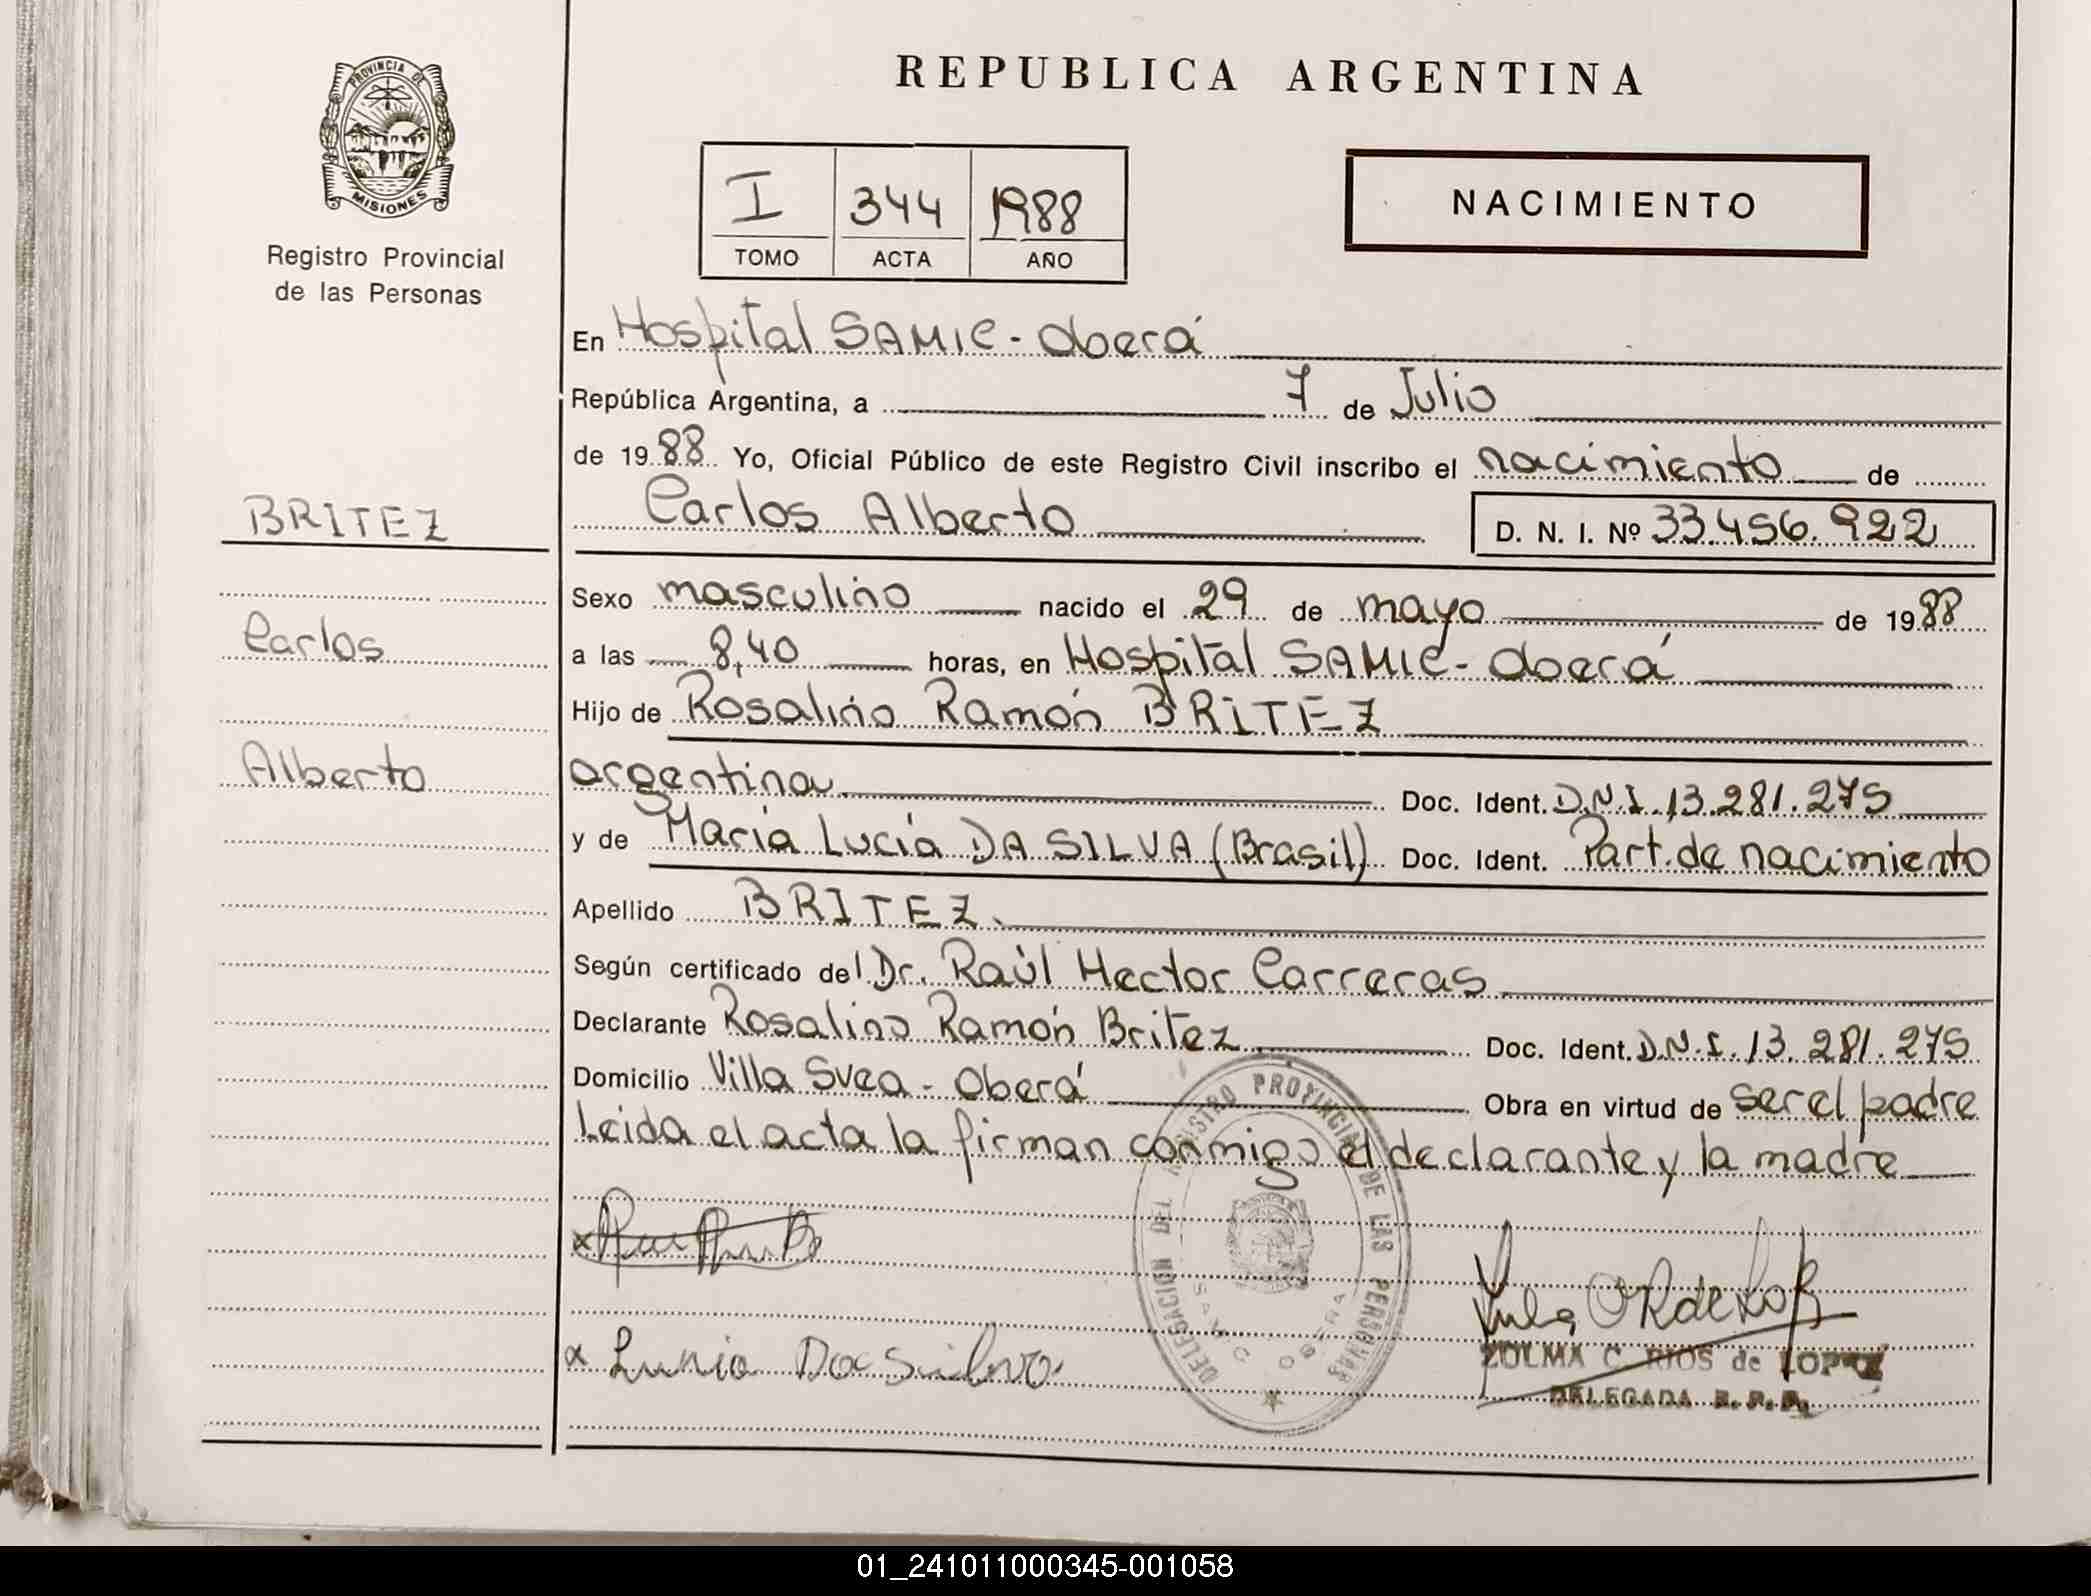 REPUBLICA ARGENTINA
PROVINCIA DE
MISIONES
Registro Provincial
de las Personas
I 344 1988
TOMO ACTA AÑO
NACIMIENTO
En Hospital SAMIC - Oberá
República Argentina, a 7 de Julio
de 1988 Yo, Oficial Público de este Registro Civil inscribo el nacimiento de
BRITEZ
Carlos Alberto D. N. I. Nº 33.456.922
Sexo masculino nacido el 29 de mayo de 1988
Carlos
a las 8,40 horas, en Hospital SAMIC - Oberá
Hijo de Rosalino Ramón BRITEZ
Alberto
argentina Doc. Ident. D.N.I. 13.281.275
y de María Lucía DA SILVA (Brasil) Doc. Ident. Part. de nacimiento
Apellido BRITEZ.
Según certificado del Dr. Raúl Hector Carreras
Declarante Rosalino Ramón Britez Doc. Ident. D.N.I. 13.281.275
Domicilio Villa Svea - Oberá Obra en virtud de ser el padre
Leida el acta la firman conmigo el declarante y la madre
DELEGACION DEL REGISTRO PROVINCIAL DE LAS PERSONAS
SAMIC OBERA
x
x Lunia Da Silva
ZULMA C. RIOS de LOPEZ
DELEGADA R.P.P.
01_241011000345-001058